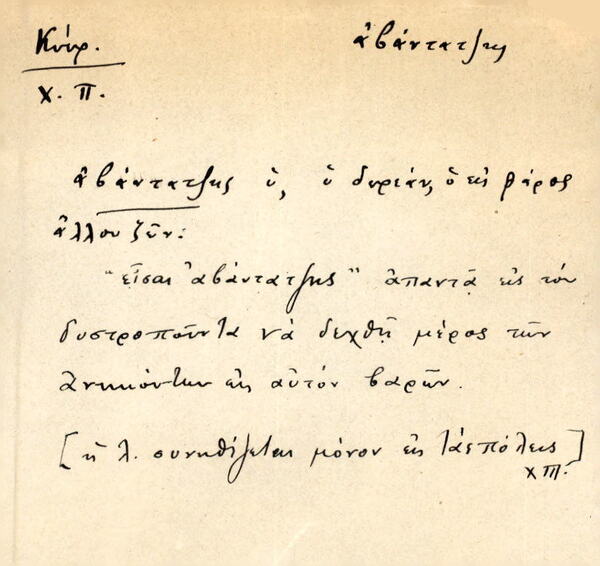 Κύπρ. ἀβάντατζης
Χ. Π.
ἀβάντατζης ὁ, ὁ δωρεάν, ὁ εἰς βάρος
ἄλλου ζῶν:
"εἶσαι ἀβάντατζης" ἀπαντᾷ εἰς τὸν
δυστροποῦντα νὰ δεχθῇ μέρος τῶν
ἀνηκόντων εἰς αὐτὸν βαρῶν.
[ἡ λ. συνηθίζεται μόνον εἰς τὰς πόλεις]
ΧΠ.